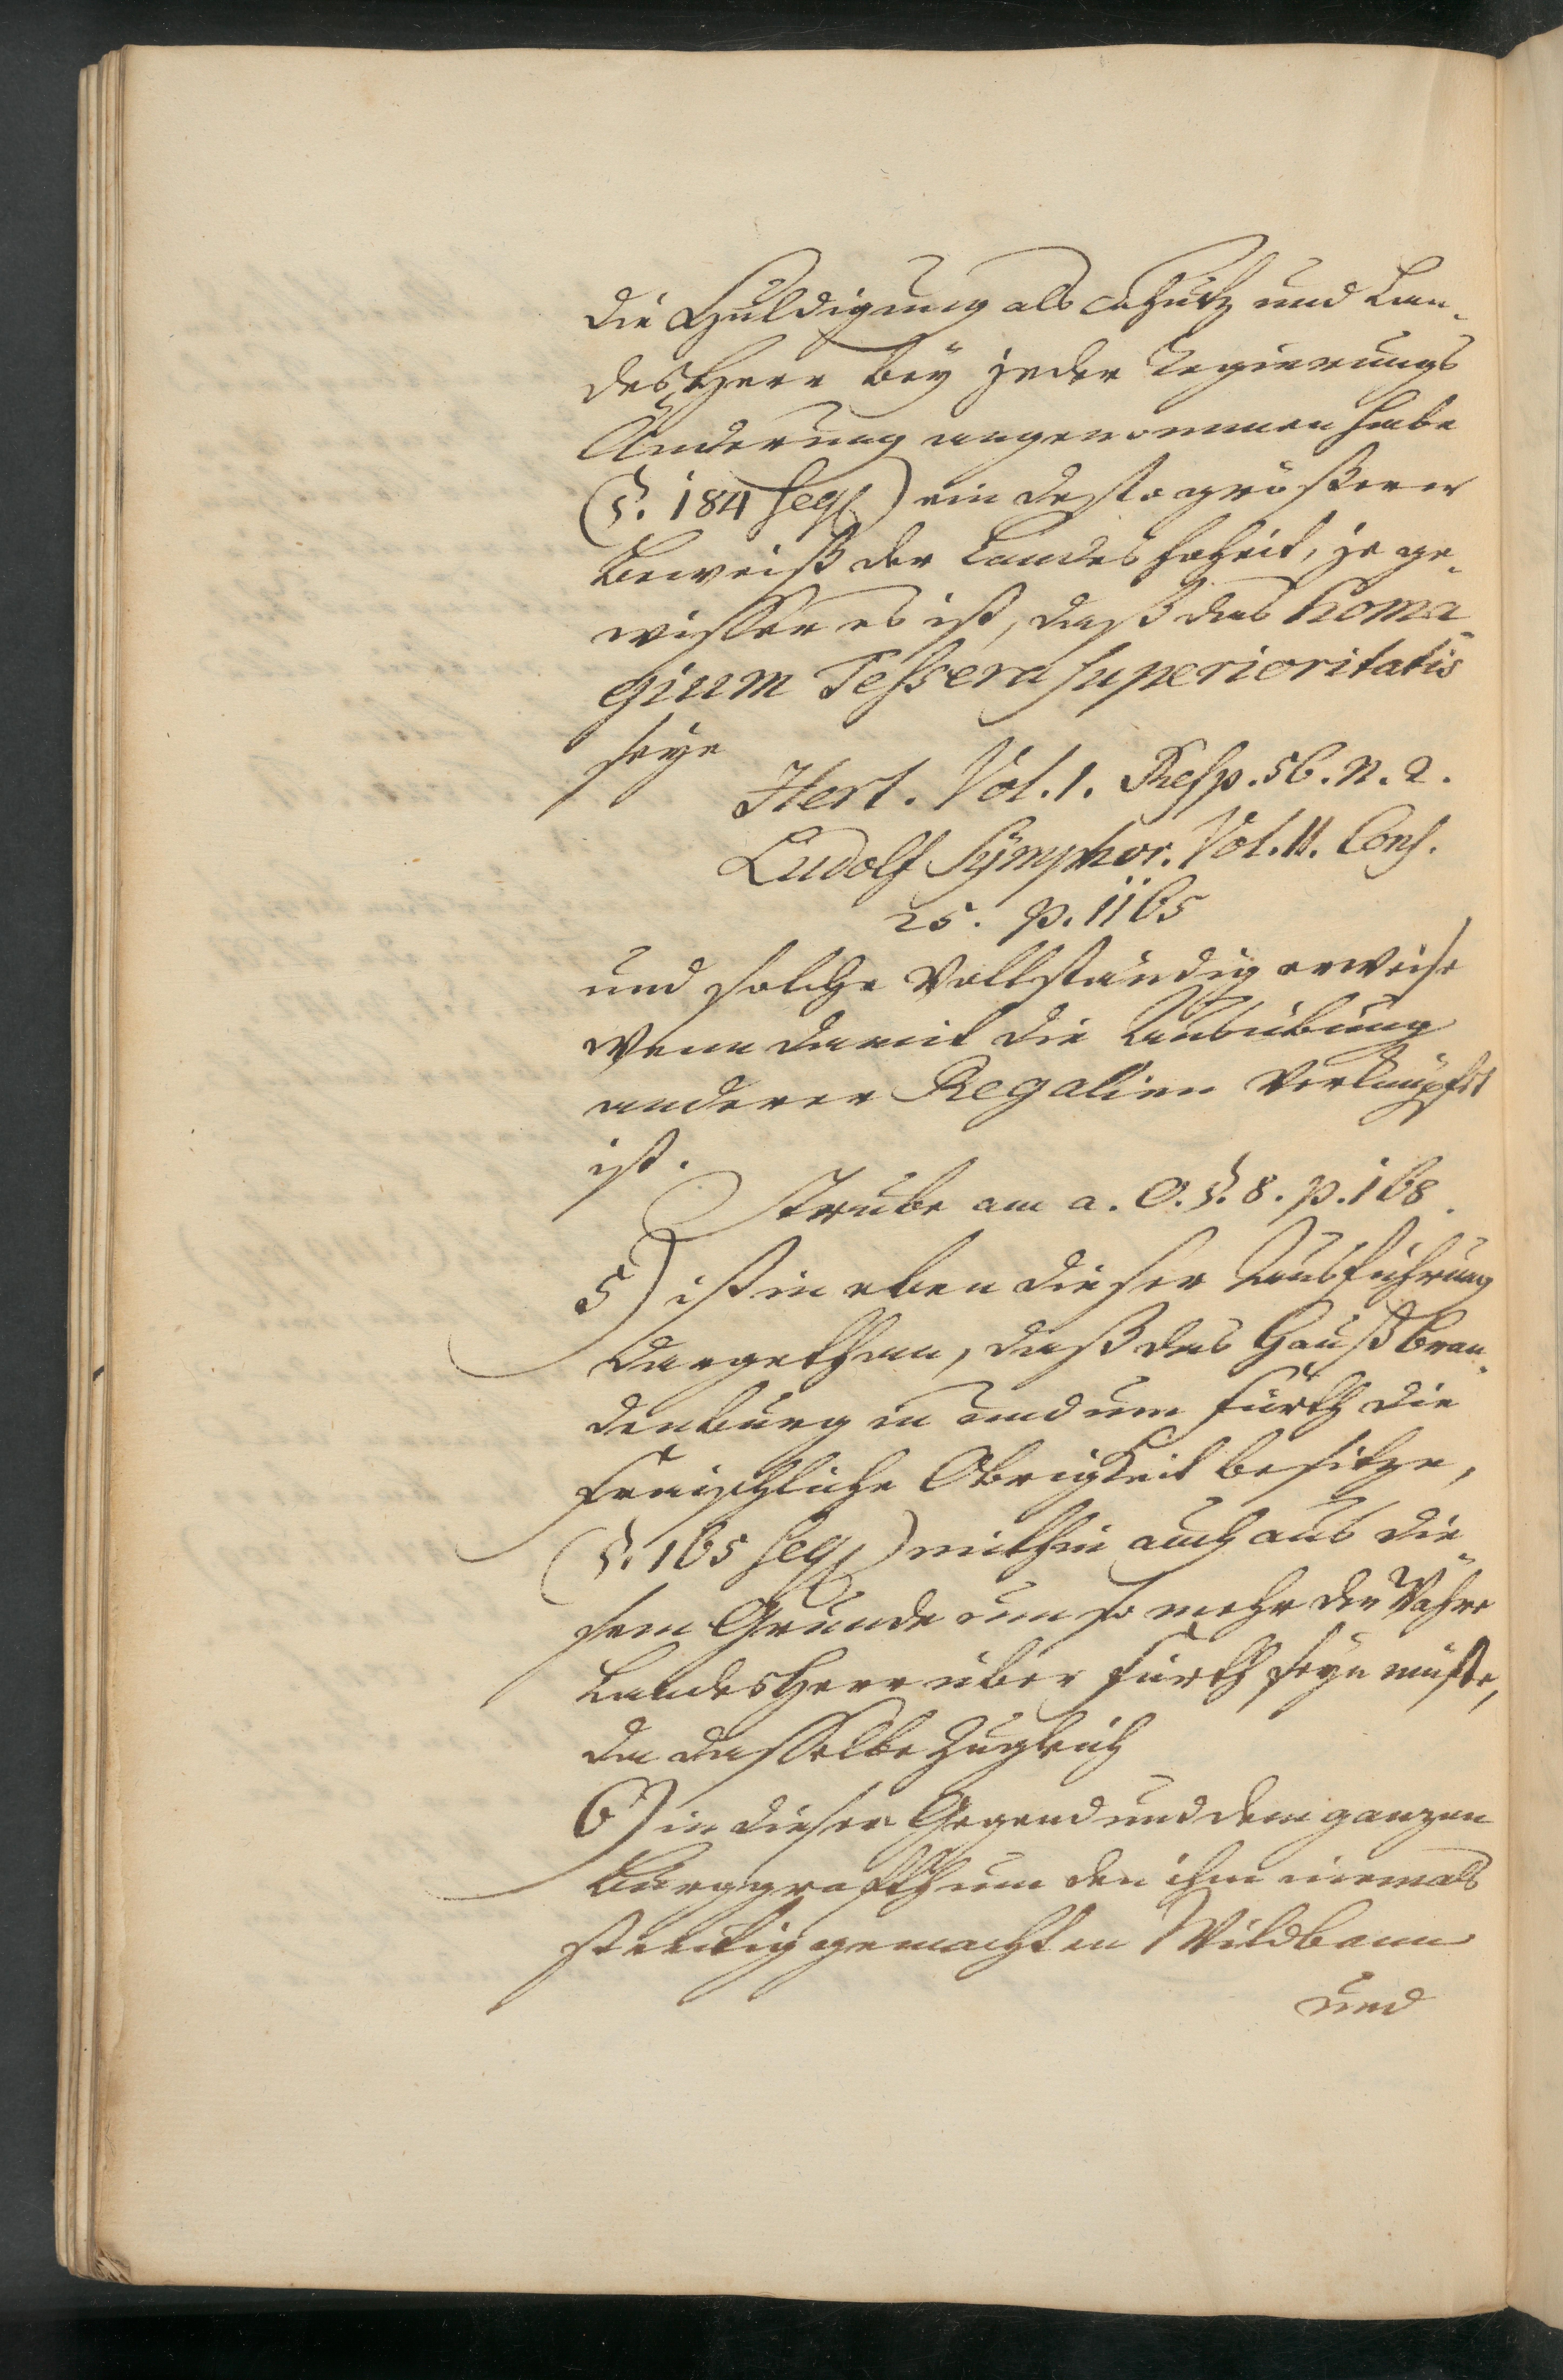 die Huldigung als Schutz und Lan-
des Herr bey jeder Regierungs
Änderung angenommen habe
(§. 184 seqq) ein desto größerer
Beweiß der Landes hoheit, je ge-
wisser es ist, daß das homa-
gium Tessera superioritatis
seye
Hert. Vol. 1. Resp. 56. n. 2.
Ludolf Symphor. Vol. II. Cons.
25. p. 1165
und solche vollständig erweise
wenn damit die Ausübung
anderer Regalien verknüpft
ist.
Strube am a. O. §. 8. p. 168.
5) ist in eben dieser Ausführung
dargethan, daß das Hauß Bran-
denburg in und um Fürth die
Fraischliche Obrigkeit besitze,
(§. 165 seqq) mithin auch aus die-
sem Grunde um so mehr der Wahre
Landes Herr über Fürth seyn müste,
da dasselbe zugleich
6) in dieser Gegend und dem ganzen
Burggrafthum den ihm niemals
streitig gemachten Wildbann
und